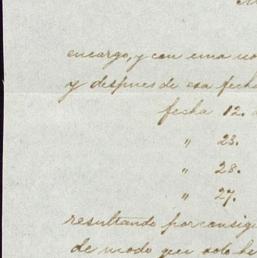 encargo, y con una no
y despues de esa fecha
fecha 12.
" 23.
" 28.
" 27.
resultando por consig
de modo que solo he